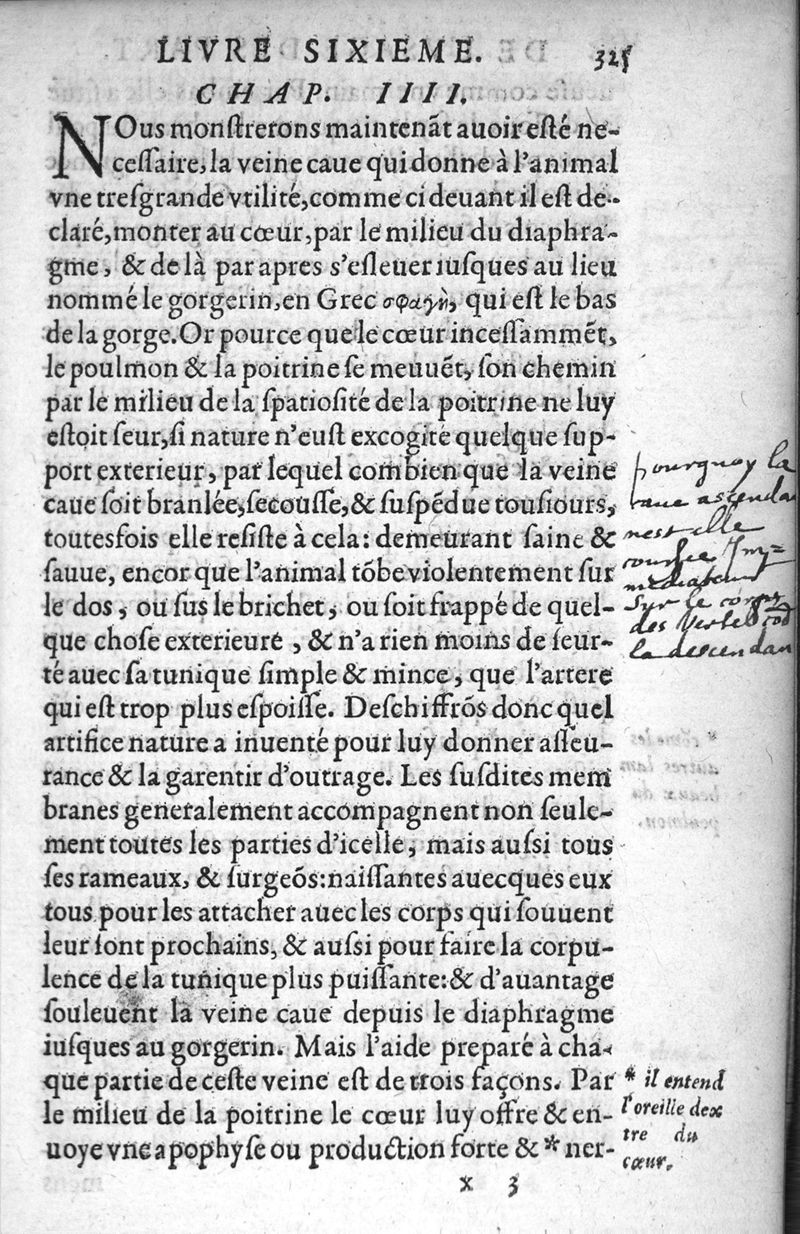 LIVRE SIXIEME. 325
CHAP. IIII.
NOus monſtrerons maintenãt auoir eſté ne-
ceſſaire, la veine caue qui donne à l'animal
vne treſgrande vtilité, comme ci deuant il eſt de-
claré, monter au cœur, par le milieu du diaphra-
gme, & de là par apres s'eſleuer iuſques au lieu
nommé le gorgerin, en Grec σφαγὴ, qui eſt le bas
de la gorge. Or pource que le cœur inceſſammẽt,
le poulmon & la poitrine ſe meuuẽt, ſon chemin
par le milieu de la ſpatioſité de la poitrine ne luy
eſtoit ſeur, ſi nature n'euſt excogité quelque ſup-
port exterieur, par lequel combien que la veine
caue ſoit branlée, ſecouſſe, & ſuſpẽdue touſiours,
toutesfois elle reſiſte à cela: demeurant ſaine &
ſauue, encor que l'animal tõbe violentement ſur
le dos, ou ſus le brichet, ou ſoit frappé de quel-
que choſe exterieure, & n'a rien moins de ſeur-
té auec ſa tunique ſimple & mince, que l'artere
qui eſt trop plus eſpoiſſe. Deſchiffrõs donc quel
artifice nature a inuenté pour luy donner aſſeu-
rance & la garentir d'outrage. Les ſuſdites mem
branes generalement accompagnent non ſeule-
ment toutes les parties d'icelle, mais auſsi tous
ſes rameaux, & ſurgeõs: naiſſantes auecques eux
tous pour les attacher auec les corps qui ſouuent
leur ſont prochains, & auſsi pour faire la corpu-
lence de la tunique plus puiſſante: & d'auantage
ſouleuent la veine caue depuis le diaphragme
iuſques au gorgerin. Mais l'aide preparé à cha-
que partie de ceſte veine eſt de trois façons. Par
le milieu de la poitrine le cœur luy offre & en-
uoye vne apophyſe ou production forte & * ner-
x 3
pourquoy la
caue ascendan
nest elle
couchee Im=
mediatement
sur le corps
des Vertebres
la descendan
* il entend
l'oreille dex
tre du
cœur.